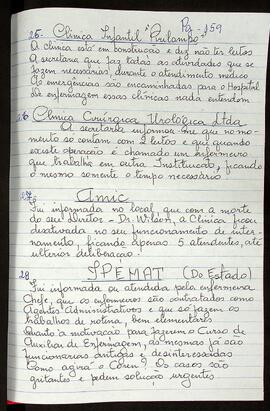 Pg - 159
25. Clínica Infantil "Pirilampo"
A clínica está em construção e diz não ter leitos
A secretaria que faz todas as atividades que se
fazem necessárias, durante o atendimento médico.
As emergências são encaminhadas para o Hospital
De enfermagem essas clínicas nada entendem
26 Clínica Cirúrgica Urológica Ltda
A secretaria informa-me que no mo-
mento só contam com 2 leitos e que quando
existe operação é chamado um enfermeiro
que trabalhe em outra Instituição, ficando
o mesmo somente o tempo necessário
27. Amic
Fui informada no local que com a morte
do seu Diretor - Dr. Wilson, a Clínica ficou
desativada no seu funcionamento de inter-
namento, ficando apenas 5 atendentes, até
ulterior deliberação.
28 SPEMAT (Do Estado)
Fui informada ou atendida pela enfermeira
Chefe, que os enfermeiros são contratados como
Agentes Administrativos e que só fazem os
trabalhos de rotina, bem elementar.
Quanto a motivação para fazerem o Curso de
Auxiliar de Enfermagem, as mesmas já são
funcionárias antigas e desinteressadas
Como agirá o Coren? Os casos são
gritantes e pedem solução urgentes